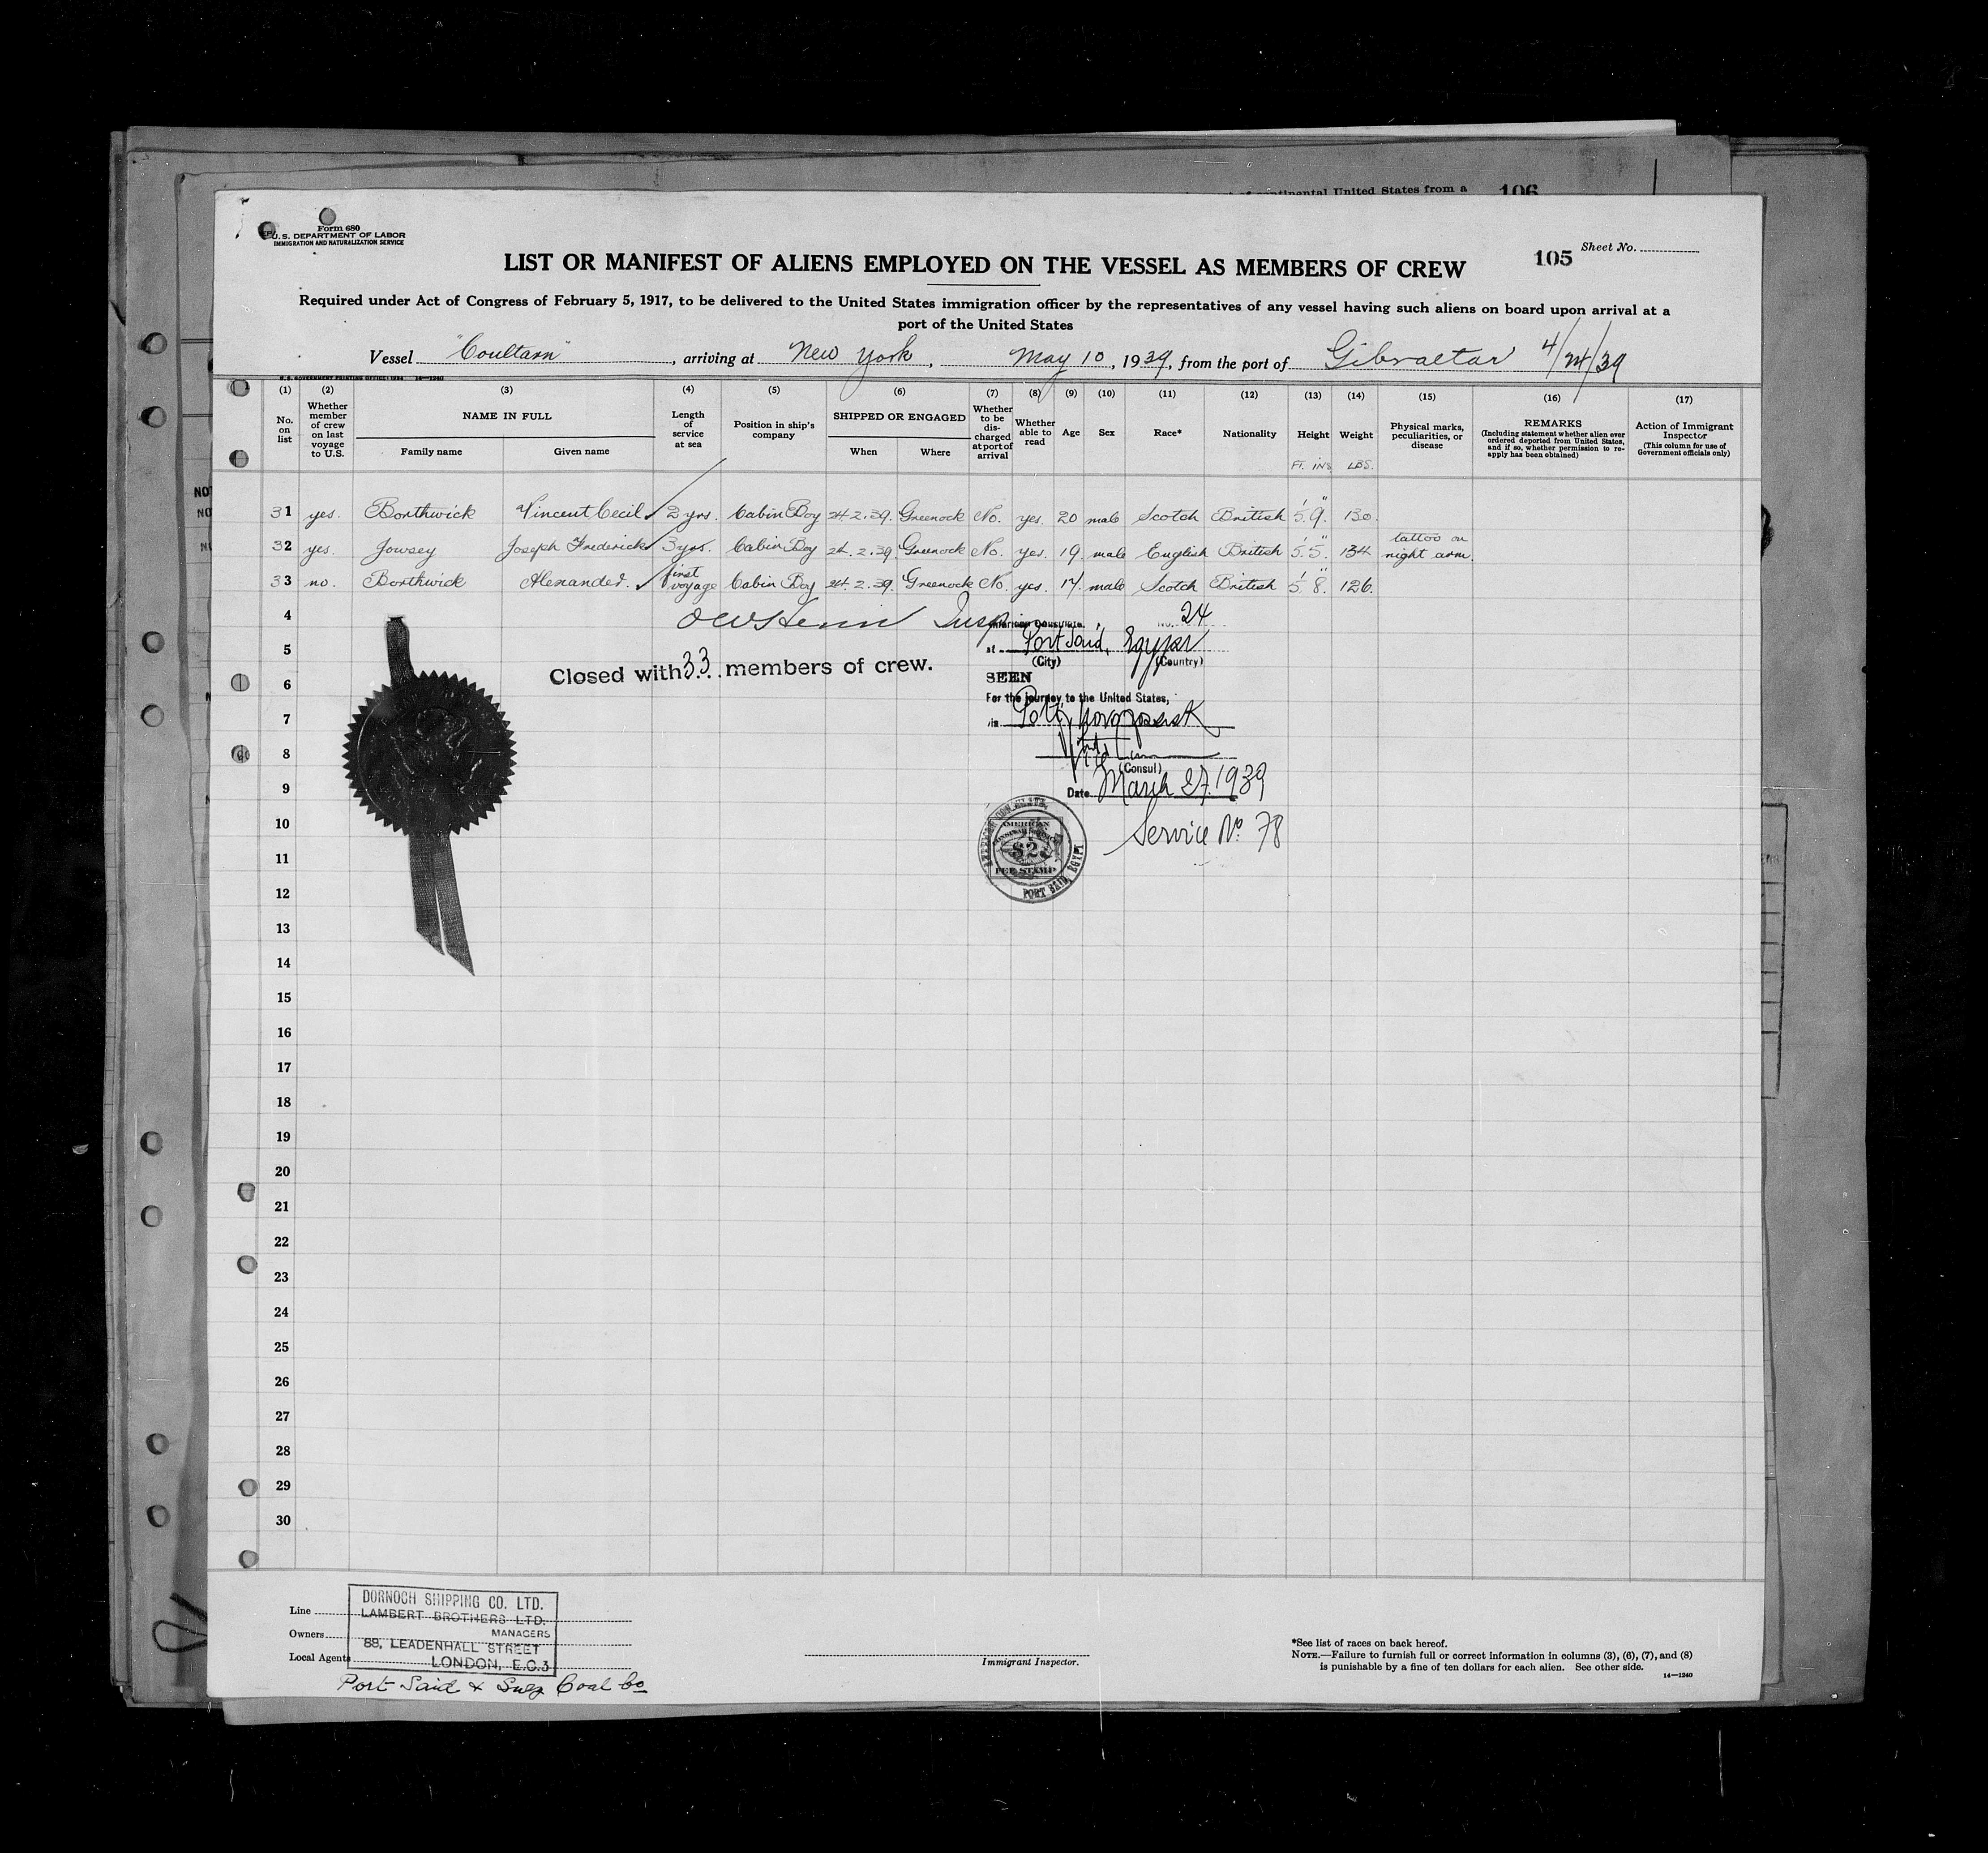 continental United States from a 106
Form 680
U.S. DEPARTMENT OF LABOR
IMMIGRATION AND NATURALIZATION SERVICE
Sheet No.
105
LIST OR MANIFEST OF ALIENS EMPLOYED ON THE VESSEL AS MEMBERS OF CREW
Required under Act of Congress of February 5, 1917, to be delivered to the United States immigration officer by the representatives of any vessel having such aliens on board upon arrival at a
port of the United States
Vessel "Coultarn", arriving at New York, May 10, 1939, from the port of Gibraltar 4/24/39
U. S. GOVERNMENT PRINTING OFFICE: 1934 14—1240
(1) (2) (3) (4) (5) (6) (7) (8) (9) (10) (11) (12) (13) (14) (15) (16) (17)
No. on list
Whether member of crew on last voyage to U.S.
NAME IN FULL
Family name
Given name
Length of service at sea
Position in ship's company
SHIPPED OR ENGAGED
When
Where
Whether to be discharged at port of arrival
Whether able to read
Age
Sex
Race*
Nationality
Height
Ft. ins
Weight
LBS.
Physical marks, peculiarities, or disease
REMARKS
(Including statement whether alien ever ordered deported from United States, and if so, whether permission to reapply has been obtained)
Action of Immigrant Inspector
(This column for use of Government officials only)
31 yes. Borthwick Vincent Cecil 2 yrs. Cabin Boy 24.2.39. Greenock No. yes. 20 male Scotch British 5' 9" 130.
32 yes. Jowsey Joseph Frederick 3 yrs. Cabin Boy 24.2.39. Greenock No. yes. 19. male English British 5' 5" 134 tattoo on right arm.
33 no. Borthwick Alexander. first voyage Cabin Boy 24.2.39. Greenock No. yes. 17. male Scotch British 5' 8" 126.
4
5
6
7
8
9
10
11
12
13
14
15
16
17
18
19
20
21
22
23
24
25
26
27
28
29
30
Insp
Closed with 33 members of crew.
American Consulate. No. 24
at Port Said, Egypt
(City) (Country)
SEEN
For the journey to the United States,
via Poti,
Vice
(Consul)
Date March 27, 1939
Service No. 78
AMERICAN CONSULATE
PORT SAID, EGYPT
AMERICAN
$2
FEE STAMP
Line
Owners
Local Agents
DORNOCH SHIPPING CO. LTD.
LAMBERT BROTHERS LTD.
MANAGERS
88, LEADENHALL STREET
LONDON, E.C.3
Port Said & Suez Coal Co
Immigrant Inspector.
*See list of races on back hereof.
NOTE.—Failure to furnish full or correct information in columns (3), (6), (7), and (8)
is punishable by a fine of ten dollars for each alien. See other side.
14—1240